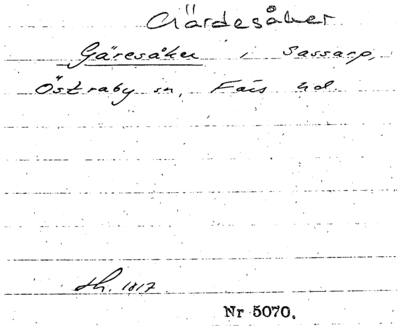 Gärdesåker
Gäresåker i Sassarp,
Östraby sn, Färs hd.
Sh. 1817
Nr 5070.